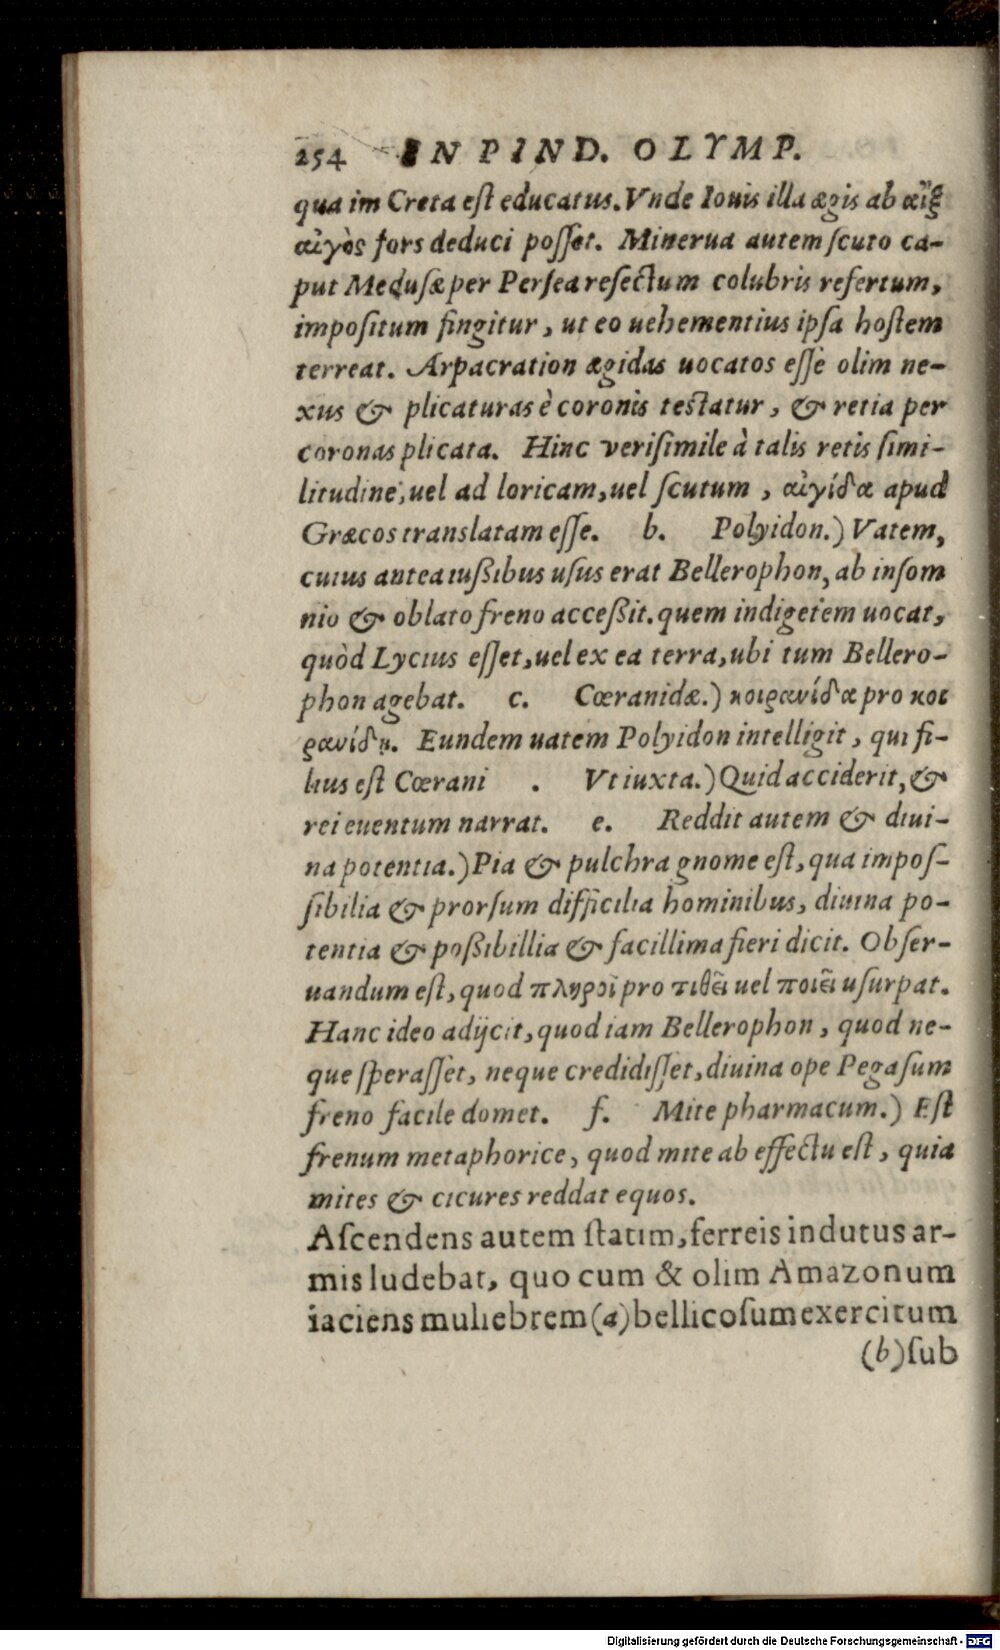 254 IN PIND. OLYMP.
qua im Creta eſt educatus. Vnde Iouis illa ægis ab αἲξ
αἰγὸς fors deduci poſſet. Minerua autem ſcuto ca-
put Meduſæ per Perſea reſectum colubris refertum,
impoſitum fingitur, ut eo uehementius ipſa hoſtem
terreat. Arpacration ægidas uocatos eſſe olim ne-
xus & plicaturas è coronis teſtatur, & retia per
coronas plicata. Hinc veriſimile à talis retis ſimi-
litudine, uel ad loricam, uel ſcutum, αἰγίδα apud
Græcos translatam eſſe. b. Polyidon.) Vatem,
cuius antea iußibus uſus erat Bellerophon, ab inſom
nio & oblato freno acceßit. quem indigetem uocat,
quòd Lycius eſſet, uel ex ea terra, ubi tum Bellero-
phon agebat. c. Cœranidæ.) κοιρανίδα pro κοι
ρανίδῃ. Eundem uatem Polyidon intelligit, qui fi-
lius eſt Cœrani . Vt iuxta.) Quid acciderit, &
rei euentum narrat. e. Reddit autem & diui-
na potentia.) Pia & pulchra gnome eſt, qua impoſ-
ſibilia & prorſum difficilia hominibus, diuina po-
tentia & poßibillia & facillima fieri dicit. Obſer-
uandum eſt, quod πληροῖ pro τιθεῖ uel ποιεῖ uſurpat.
Hanc ideo adijcit, quod iam Bellerophon, quod ne-
que ſperaſſet, neque credidiſſet, diuina ope Pegaſum
freno facile domet. f. Mite pharmacum.) Eſt
frenum metaphorice, quod mite ab effectu eſt, quia
mites & cicures reddat equos.
Aſcendens autem ſtatim, ferreis indutus ar-
mis ludebat, quo cum & olim Amazonum
iaciens muliebrem (a) bellicoſum exercitum
(b) ſub
Digitalisierung gefördert durch die Deutsche Forschungsgemeinschaft - DFG